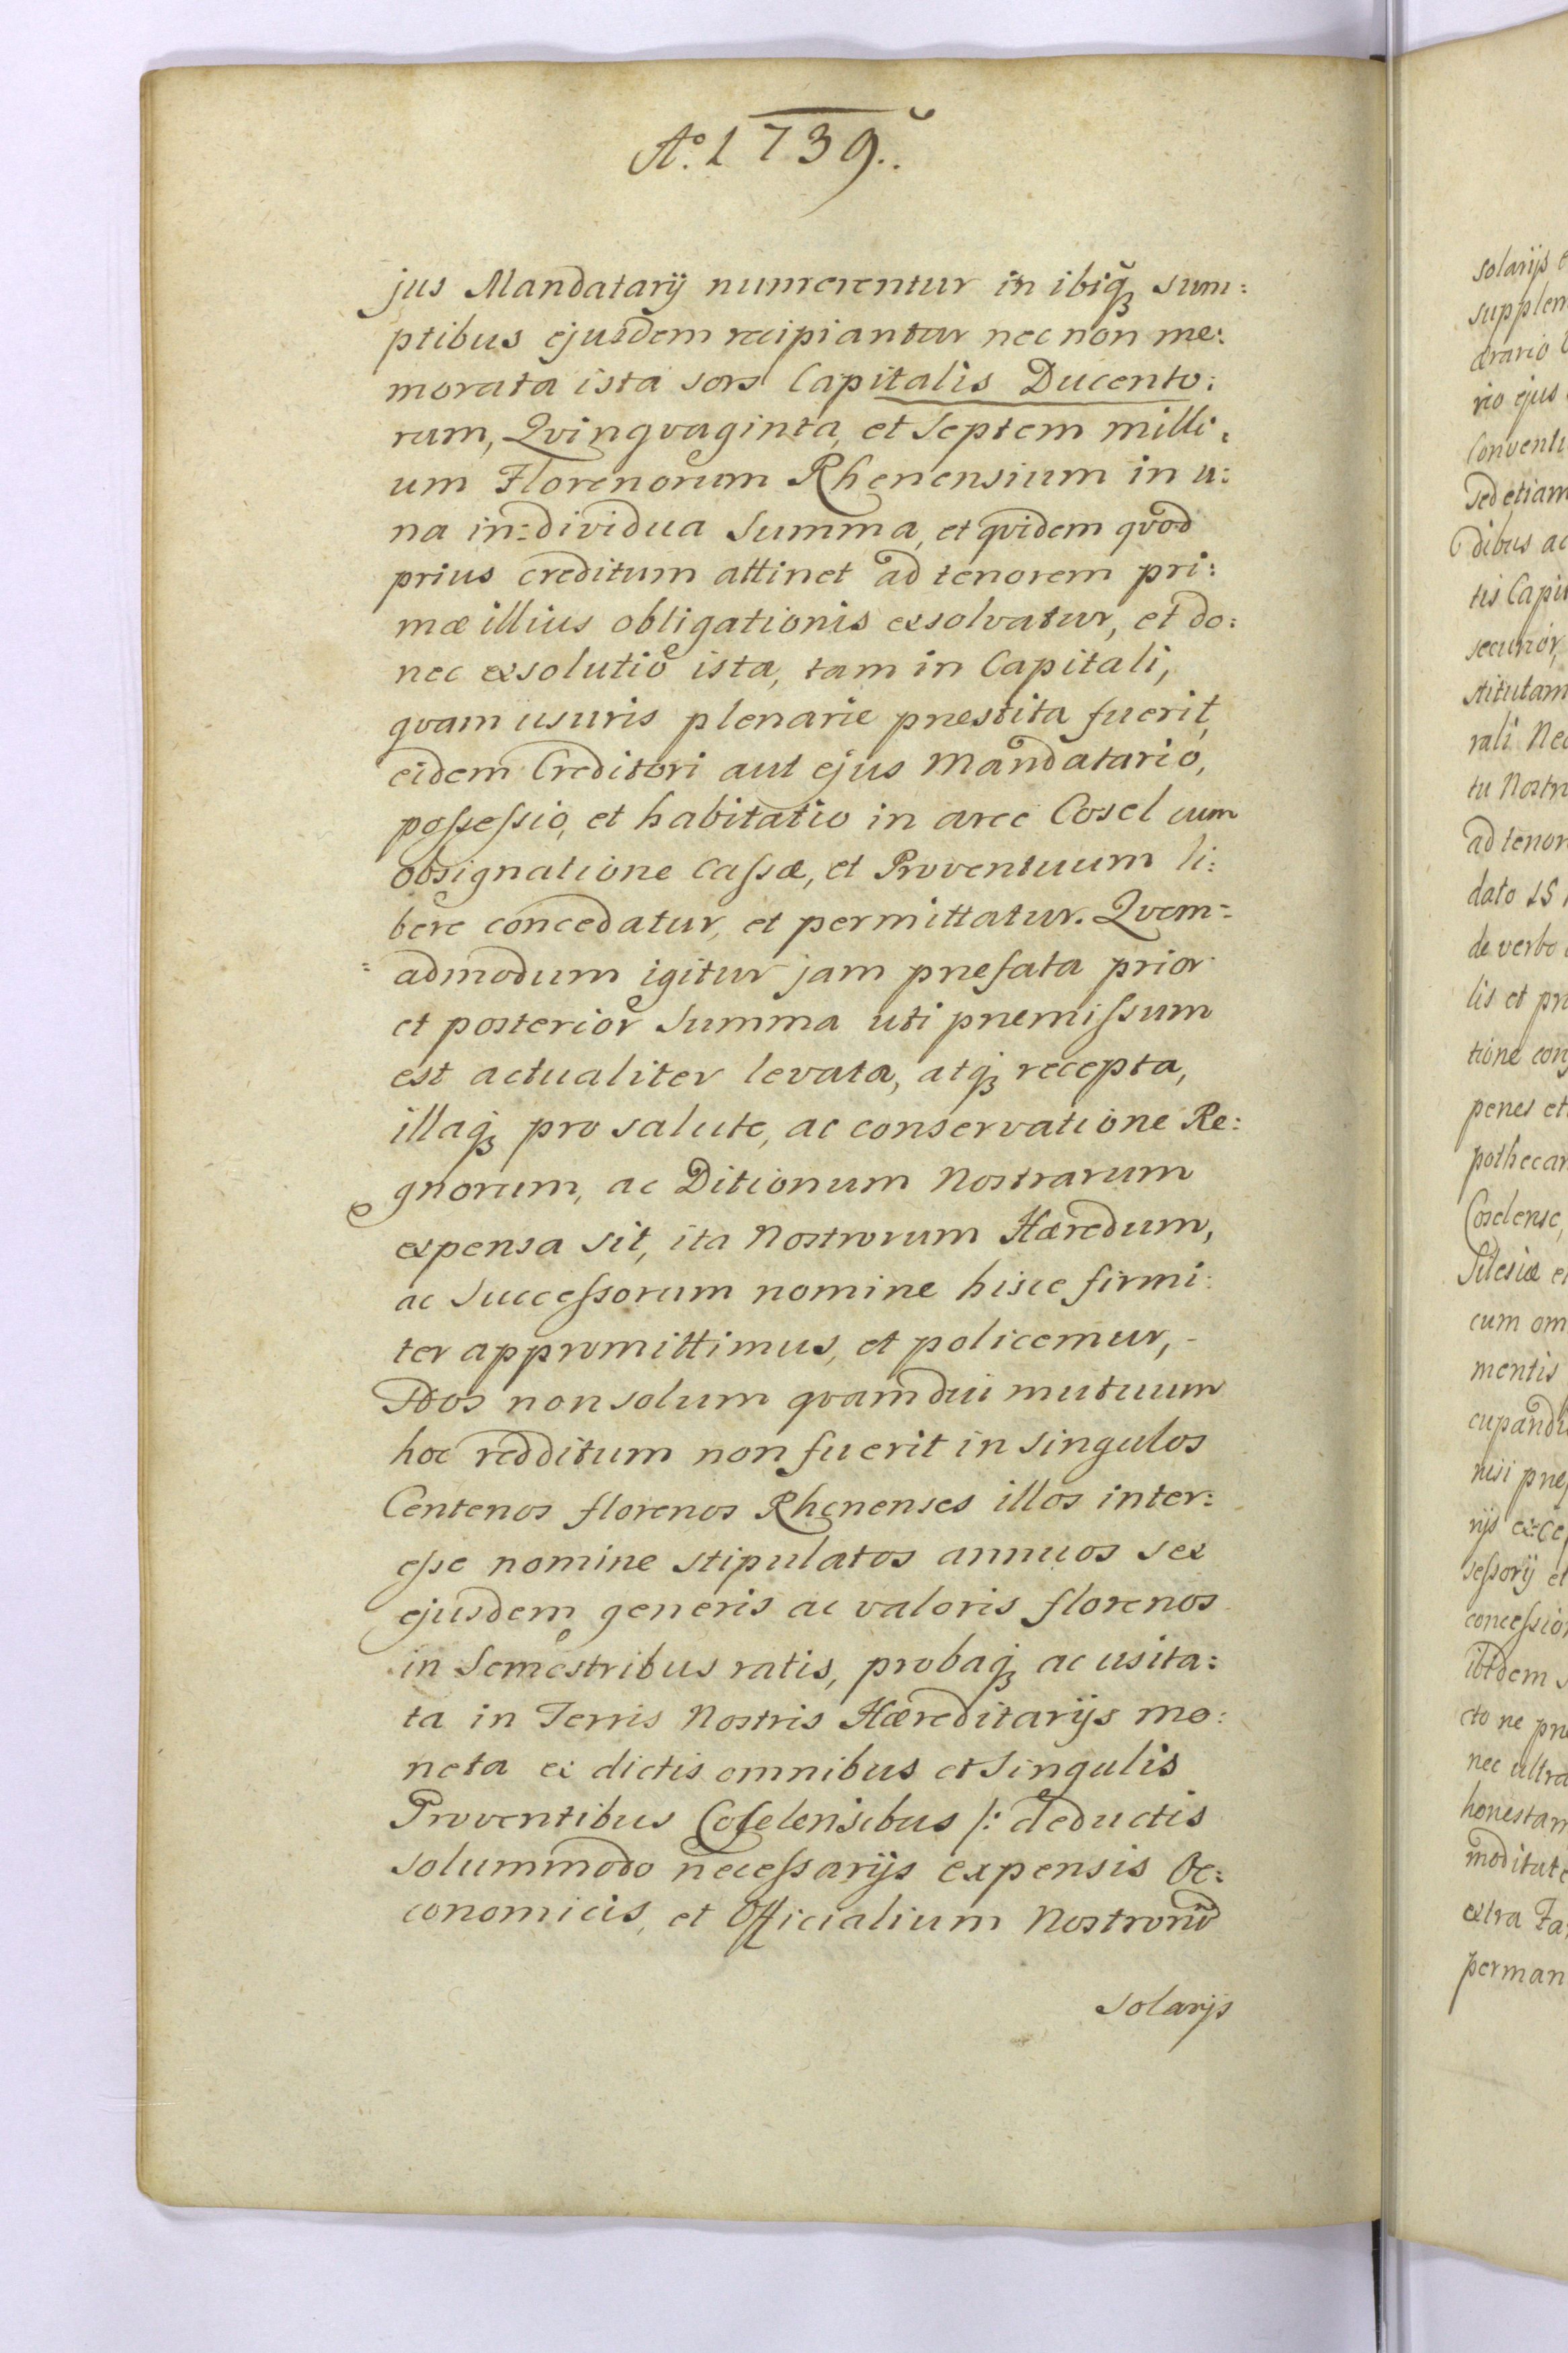 Aº. 1739..
jus Mandatarij numerentur in ibiq3 sum:
ptibus ejusdem recipiantur nec non me:
morata ista sors Capitalis Ducento:
rum, Qvinqvaginta, et Septem milli:
um Florenorum Rhenensium in u:
na in=dividua Summa, et qvidem qvod
prius creditum attinet ad tenorem pri:
mæ illius obligationis exsolvatur, et do:
nec exsolutio ista, tam in Capitali,
qvam usuris plenarie præstita fuerit,
eidem Creditori aut ejus Mandatario,
possessio, et habitatio in arce Cosel cum
obsignatione Cassæ, et Proventuum li:
bere concedatur, et permittatur. Qvem=
=admodum igitur jam præfata prior
et posterior Summa uti præmissum
est actualiter levata, atq3 recepta,
illaq3 pro salute, ac conservatione Re:
gnorum, ac Ditionum Nostrarum
expensa sit, ita Nostrorum Hæredum,
ac Successorum nomine hisce firmi:
ter appromittimus, et policemur, -
Nos non solum qvamdiu mutuum
hoc redditum non fuerit in singulos
Centenos florenos Rhenenses illos inter:
esse nomine stipulatos annuos sex
ejusdem generis ac valoris florenos
in Semestribus ratis, probaq3 ac usita:
ta in Terris Nostris Hæreditarijs mo:
neta ex dictis omnibus et Singulis
Proventibus Coselensibus /: deductis
solummodo necessarijs expensis Oe:
conomicis, et Officialium Nostrorum
solarijs
solarijs
supplem
ærario
rio ejus
Conventi
sed etiam
dibus ac
tis Capit
securior,
stitutam
rali Nec
tu Nostr
ad tenor
dato 15
de verbo
lis et præ
tione con
penes et
pothecar
Coselense,
Silesiæ e
cum om
mentis
cupandi
nisi præ
rijs exce
sessorij et
concession
ibidem s
cto ne præ
nec ultra
honestam
moditate
extra Fa
perman